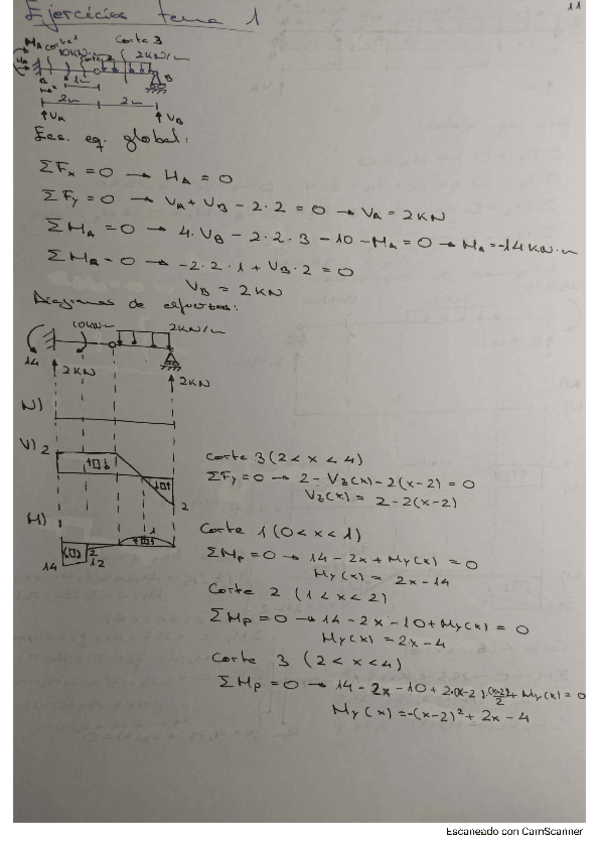 11
Ejercicios tema 1
corte 3
MA corte 1 10kN·m 2KN/m
HA
B
1m
2m 2m
↑VA ↑VB
Ec. eq. global:
ΣFx = 0 → HA = 0
ΣFy = 0 → VA + VB - 2·2 = 0 → VA = 2KN
ΣMA = 0 → 4·VB - 2·2·3 - 10 - MA = 0 → MA = -14KN·m
ΣMR = 0 → -2·2·1 + VB·2 = 0
VB = 2KN
Diagramas de esfuerzos:
10kNm 2KN/m
14 ↑2KN ↑2KN
N)
V) 2
2
M) 1
14 12 2
Corte 3 (2 < x < 4)
ΣFy = 0 → 2 - Vz(x) - 2(x-2) = 0
Vz(x) = 2 - 2(x-2)
Corte 1 (0 < x < 1)
ΣMp = 0 → 14 - 2x + My(x) = 0
My(x) = 2x - 14
Corte 2 (1 < x < 2)
ΣMp = 0 → 14 - 2x - 10 + My(x) = 0
My(x) = 2x - 4
Corte 3 (2 < x < 4)
ΣMp = 0 → 14 - 2x - 10 + 2·(x-2)·(x-2)/2 + My(x) = 0
My(x) = -(x-2)² + 2x - 4
Escaneado con CamScanner